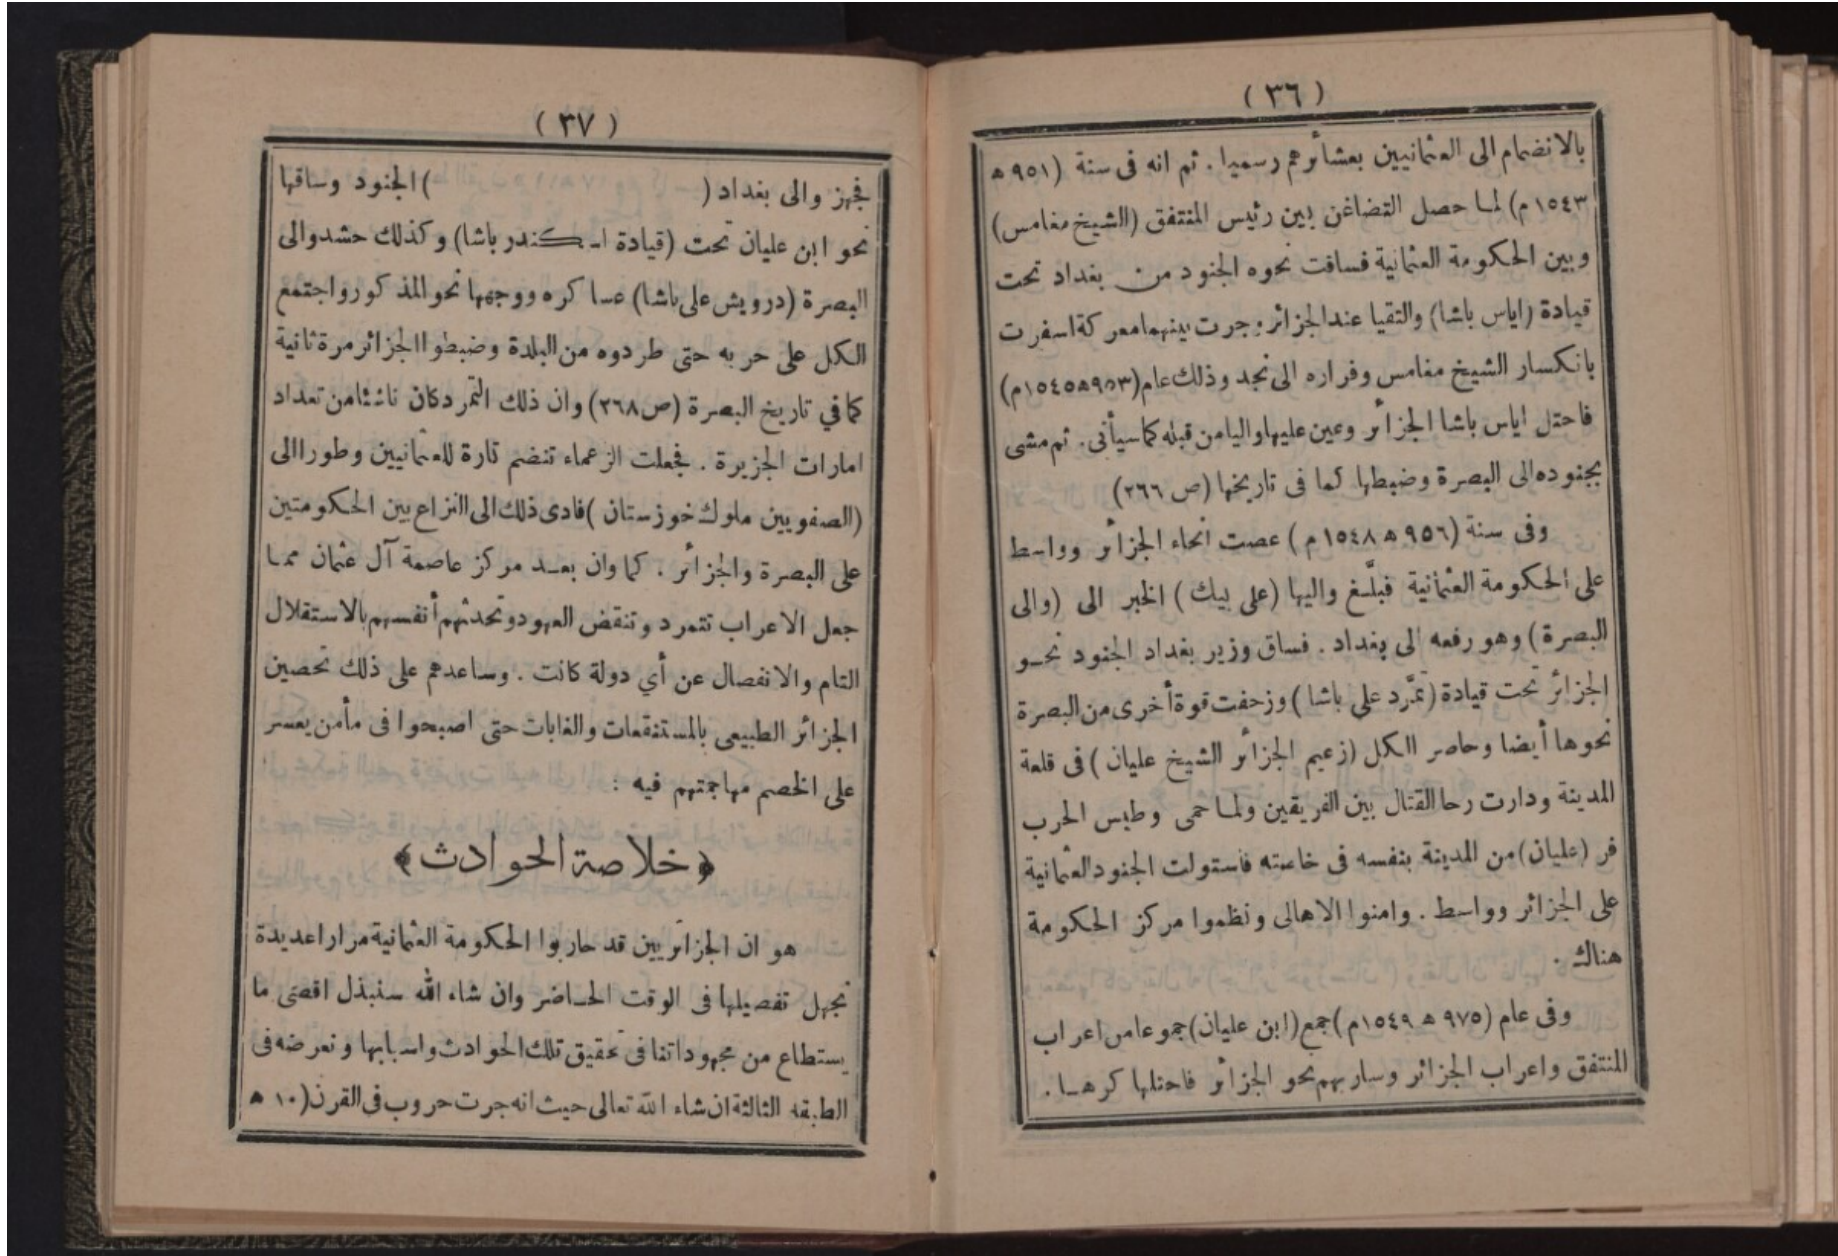 ( ٣٦ )
بالانضمام الى العثمانيين بعشائرهم رسميا . ثم انه فى سنة ( ٩٥١ ه
١٥٤٣ م) لما حصل التضاغن بين رئيس المنتفق (الشيخ مغامس)
وبين الحكومة العثمانية فساقت نحوه الجنود من بغداد تحت
قيادة (اياس باشا) والتقيا عند الجزائر وجرت بينهما معركة اسفرت
بانكسار الشيخ مغامس وفراره الى نجد وذلك عام (٩٥٣ه١٥٤٥م)
فاحتل اياس باشا الجزائر وعين عليها واليا من قبله كما سيأتى . ثم مشى
بجنوده الى البصرة وضبطها كما فى تاريخها (ص ٢٦٦)
وفى سنة (٩٥٦ ه ١٥٤٨ م ) عصت انحاء الجزائر وواسط
على الحكومة العثمانية فبلّغ واليها (على بيك ) الخبر الى (والى
البصرة ) وهو رفعه الى بغداد . فساق وزير بغداد الجنود نحو
الجزائر تحت قيادة (تمرّد على باشا ) وزحفت قوة أخرى من البصرة
نحوها أيضا وحاصر الكل (زعيم الجزائر الشيخ عليان ) فى قلعة
المدينة ودارت رحا القتال بين الفريقين ولما حمى وطيس الحرب
فر (عليان) من المدينة بنفسه فى خاصته فاستولت الجنود العثمانية
على الجزائر وواسط . وامنوا الاهالى ونظموا مركز الحكومة
هناك .
وفى عام (٩٧٥ ه ١٥٤٩م) جمع (ابن عليان) جموعا من اعراب
المنتفق واعراب الجزائر وسار بهم نحو الجزائر فاحتلها كرها .
( ٣٧ )
فجهز والى بغداد ( ) الجنود وساقها
نحو ابن عليان تحت (قيادة اسكندر باشا) وكذلك حشد والى
البصرة (درويش على باشا) عساكره ووجهها نحو المذكور واجتمع
الكل على حربه حتى طردوه من البلدة وضبطوا الجزائر مرة ثانية
كما في تاريخ البصرة (ص٢٦٨) وان ذلك التمرد كان ناشئا من تعداد
امارات الجزيرة . فجعلت الزعماء تنضم تارة للعثمانيين وطورا الى
(الصفويين ملوك خوزستان ) فادى ذلك الى النزاع بين الحكومتين
على البصرة والجزائر . كما وان بعد مركز عاصمة آل عثمان مما
جعل الاعراب تتمرد وتنقض العهود وتحدثهم أنفسهم بالاستقلال
التام والانفصال عن أي دولة كانت . وساعدهم على ذلك تحصين
الجزائر الطبيعى بالمستنقعات والغابات حتى اصبحوا فى مأمن يعسر
على الخصم مهاجمتهم فيه :
﴿ خلاصة الحوادث ﴾
هو ان الجزائريين قد حاربوا الحكومة العثمانية مرارا عديدة
نجهل تفصيلها فى الوقت الحاضر وان شاء الله سنبذل اقصى ما
يستطاع من مجهوداتنا فى تحقيق تلك الحوادث واسبابها ونعرضه فى
الطبقه الثالثة ان شاء الله تعالى حيث انه جرت حروب فى القرن (١٠ ه